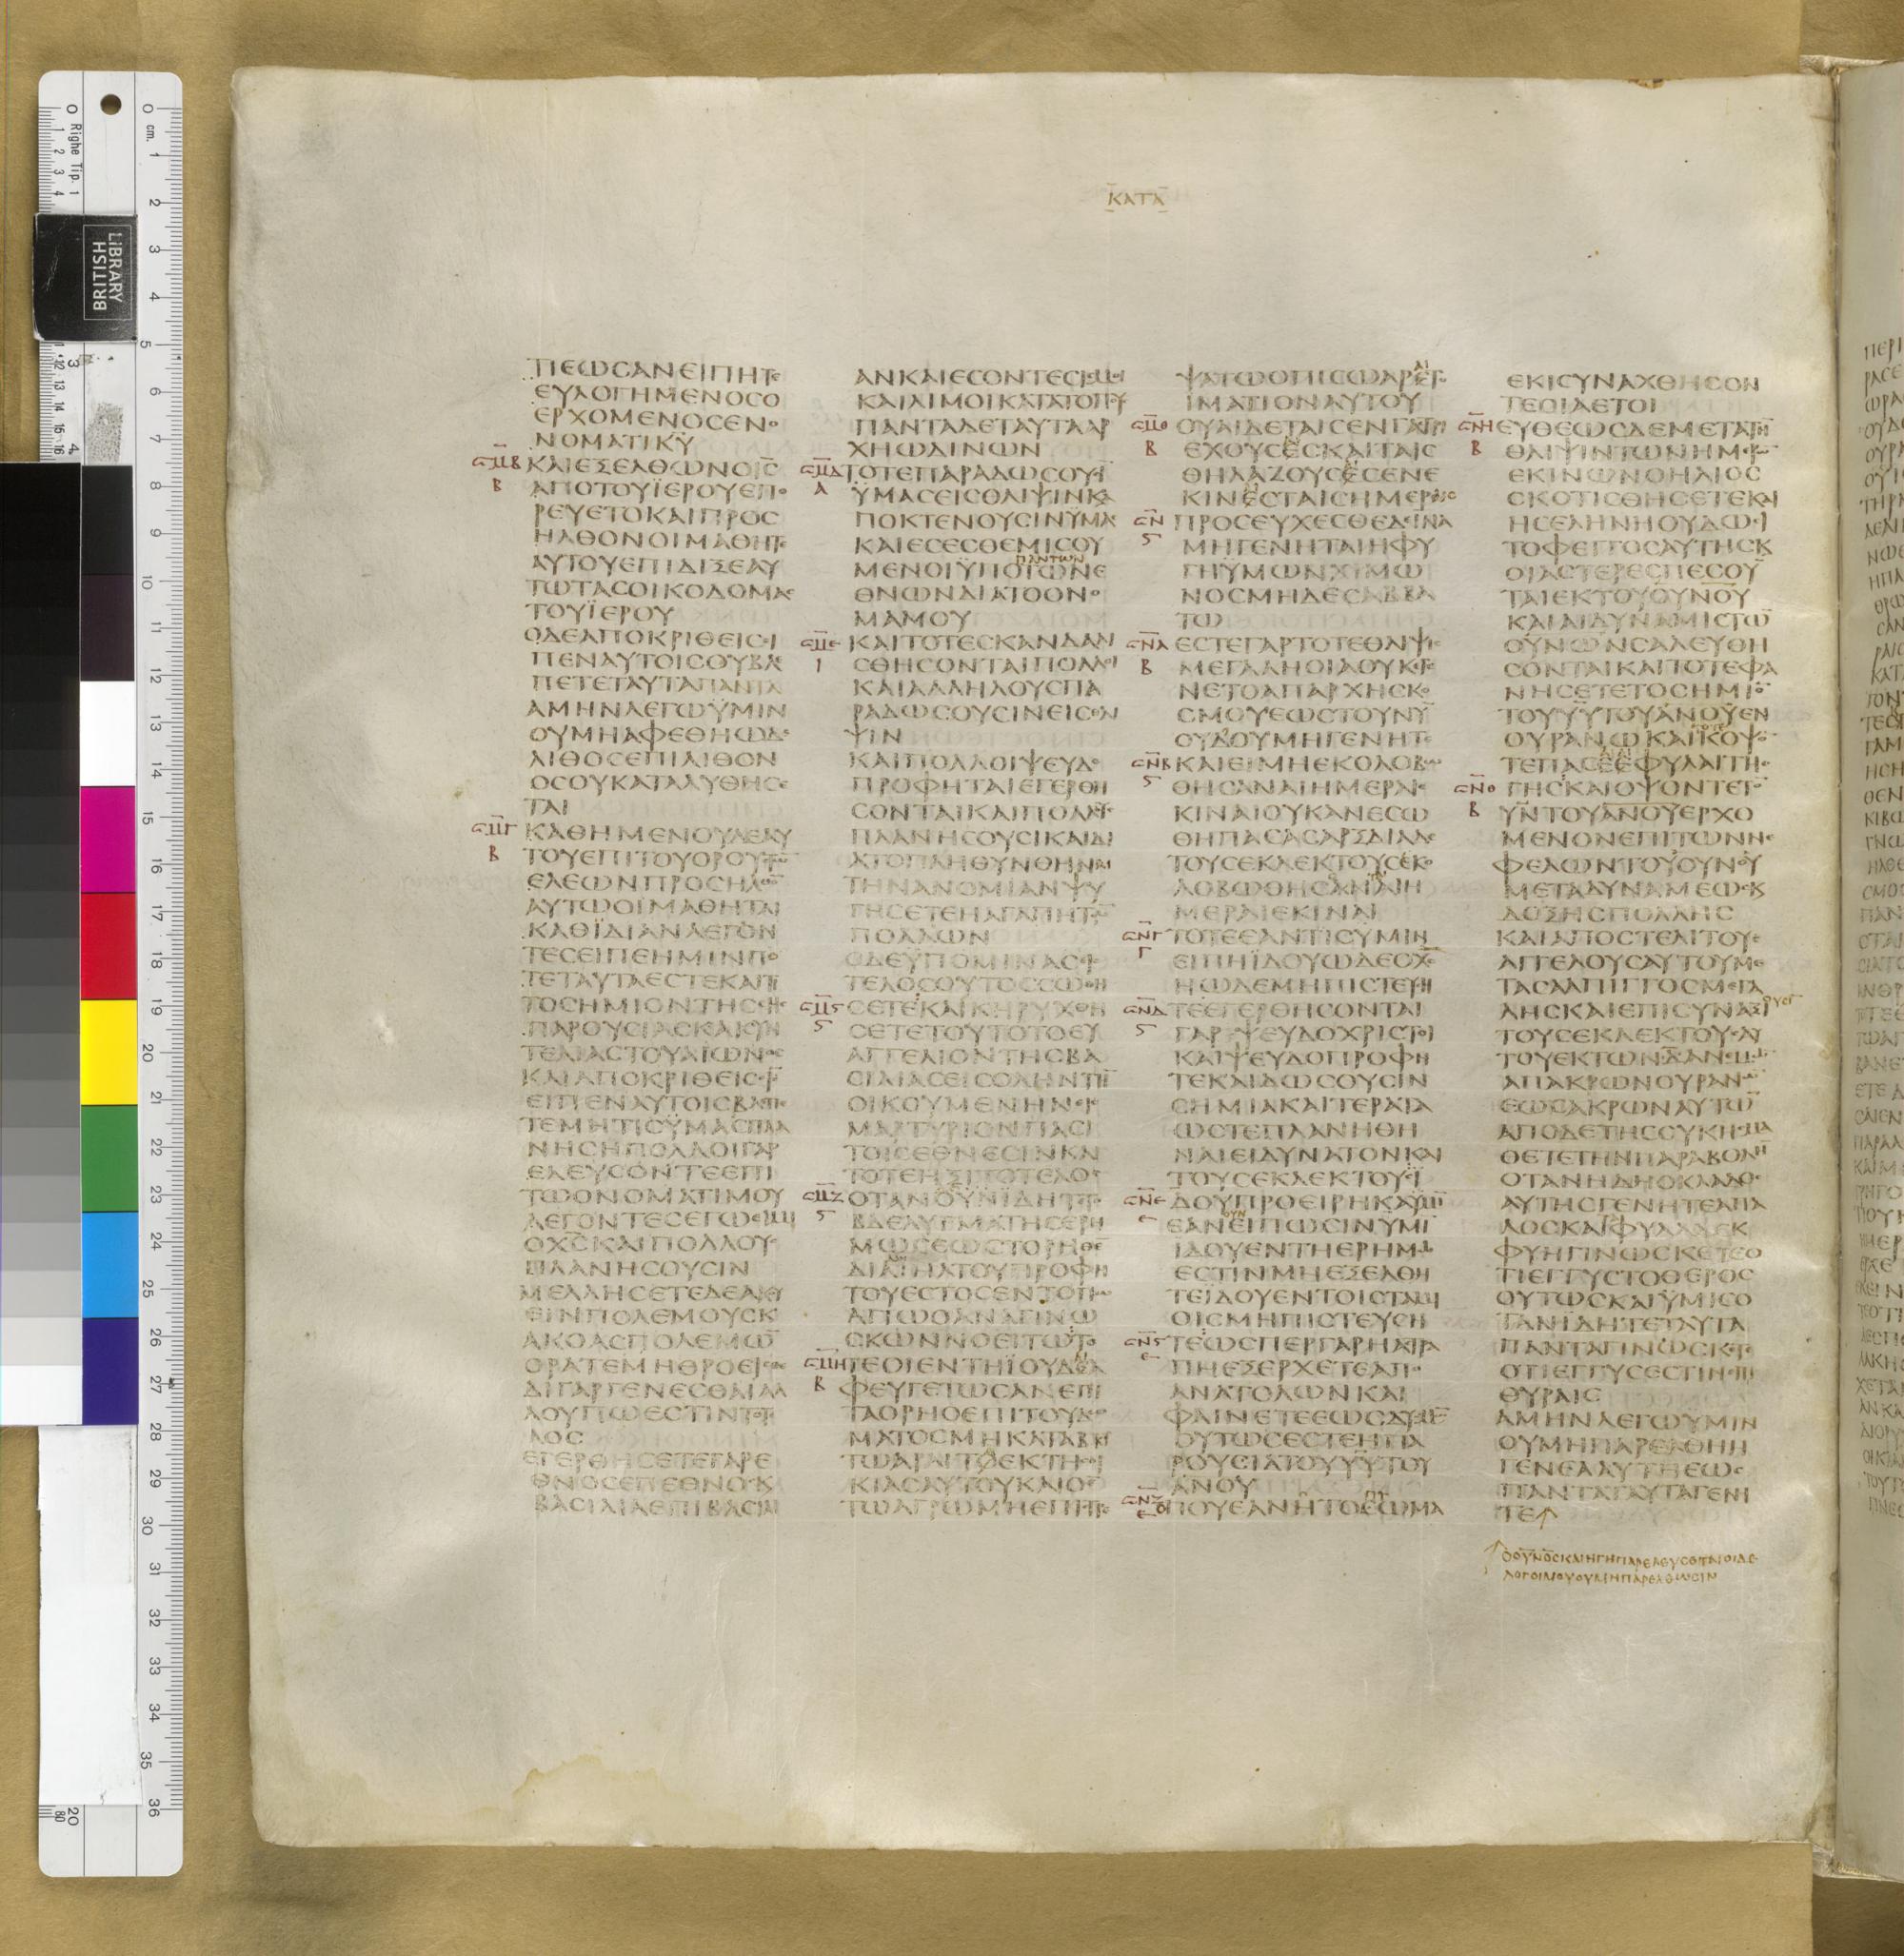 ΚΑΤΑ
ΤΙΕΩΣΑΝΕΙΠΗΤΕ
ΕΥΛΟΓΗΜΕΝΟΣΟ
ΕΡΧΟΜΕΝΟΣΕΝΟ
ΝΟΜΑΤΙΚΥ
ΚΑΙΕΞΕΛΘΩΝΟΙΣ
ΑΠΟΤΟΥΪΕΡΟΥΕΠΟ
ΡΕΥΕΤΟΚΑΙΠΡΟΣ
ΗΛΘΟΝΟΙΜΑΘΗΤΑΙ
ΑΥΤΟΥΕΠΙΔΙΞΕΑΥ
ΤΩΤΑΣΟΙΚΟΔΟΜΑΣ
ΤΟΥΪΕΡΟΥ
ΟΔΕΑΠΟΚΡΙΘΕΙΣΕΙ
ΠΕΝΑΥΤΟΙΣΟΥΒΛΕ
ΠΕΤΕΤΑΥΤΑΠΑΝΤΑ
ΑΜΗΝΛΕΓΩΫΜΙΝ
ΟΥΜΗΑΦΕΘΗΩΔΕ
ΛΙΘΟΣΕΠΙΛΙΘΟΝ
ΟΣΟΥΚΑΤΑΛΥΘΗΣΕ
ΤΑΙ
ΚΑΘΗΜΕΝΟΥΔΕΑΥ
ΤΟΥΕΠΙΤΟΥΟΡΟΥΣΤΩ
ΕΛΕΩΝΠΡΟΣΗΛΘΟΝ
ΑΥΤΩΟΙΜΑΘΗΤΑΙ
ΚΑΘΪΔΙΑΝΛΕΓΟΝ
ΤΕΣΕΙΠΕΗΜΙΝΠΟ
ΤΕΤΑΥΤΑΕΣΤΕΚΑΙΤΙ
ΤΟΣΗΜΙΟΝΤΗΣΣΗΣ
ΠΑΡΟΥΣΙΑΣΚΑΙΣΥΝ
ΤΕΛΙΑΣΤΟΥΑΙΩΝΟΣ
ΚΑΙΑΠΟΚΡΙΘΕΙΣΟΙΣ
ΕΙΠΕΝΑΥΤΟΙΣΒΛΕΠΕ
ΤΕΜΗΤΙΣΫΜΑΣΠΛΑ
ΝΗΣΗΠΟΛΛΟΙΓΑΡ
ΕΛΕΥΣΟΝΤΕΕΠΙ
ΤΩΟΝΟΜΑΤΙΜΟΥ
ΛΕΓΟΝΤΕΣΕΓΩΕΙΜΙ
ΟΧΣΚΑΙΠΟΛΛΟΥΣ
ΠΛΑΝΗΣΟΥΣΙΝ
ΜΕΛΛΗΣΕΤΕΔΕΑΚΟΥ
ΕΙΝΠΟΛΕΜΟΥΣΚ
ΑΚΟΑΣΠΟΛΕΜΩ
ΟΡΑΤΕΜΗΘΡΟΕΙΣΘΕ
ΔΙΓΑΡΓΕΝΕΣΘΑΙΑΛ
ΛΟΥΠΩΕΣΤΙΝΤΟΤΕ
ΛΟΣ
ΕΓΕΡΘΗΣΕΤΕΓΑΡΕ
ΘΝΟΣΕΠΕΘΝΟΣΚ
ΒΑΣΙΛΙΑΕΠΙΒΑΣΙΛΙ
ΑΝΚΑΙΕΣΟΝΤΕΣΙΣΜΟΙ
ΚΑΙΛΙΜΟΙΚΑΤΑΤΟΠΟΥΣ
ΠΑΝΤΑΔΕΤΑΥΤΑΑΡ
ΧΗΩΔΙΝΩΝ
ΤΟΤΕΠΑΡΑΔΩΣΟΥΣΙ
ΫΜΑΣΕΙΣΘΛΙΨΙΝΚΑ
ΠΟΚΤΕΝΟΥΣΙΝΫΜΑΣ
ΚΑΙΕΣΕΣΘΕΜΙΣΟΥ
ΠΑΝΤΩΝ
ΜΕΝΟΙΫΠΟΤΩΝΕ
ΘΝΩΝΔΙΑΤΟΟΝΟ
ΜΑΜΟΥ
ΚΑΙΤΟΤΕΣΚΑΝΔΑΛΙ
ΣΘΗΣΟΝΤΑΙΠΟΛΛΟΙ
ΚΑΙΑΛΛΗΛΟΥΣΠΑ
ΡΑΔΩΣΟΥΣΙΝΕΙΣΘΛΙ
ΨΙΝ
ΚΑΙΠΟΛΛΟΙΨΕΥΔΟ
ΠΡΟΦΗΤΑΙΕΓΕΡΘΗ
ΣΟΝΤΑΙΚΑΙΠΟΛΛΟΥΣ
ΠΛΑΝΗΣΟΥΣΙΚΑΙΔΙ
ΑΤΟΠΛΗΘΥΝΘΗΝΑΙ
ΤΗΝΑΝΟΜΙΑΝΨΥ
ΓΗΣΕΤΕΗΑΓΑΠΗΤΩ
ΠΟΛΛΩΝ
ΟΔΕΫΠΟΜΙΝΑΣΕΙΣ
ΤΕΛΟΣΟΥΤΟΣΣΩΘΗ
ΣΕΤΕΚΑΙΚΗΡΥΧΘΗ
ΣΕΤΕΤΟΥΤΟΤΟΕΥ
ΑΓΓΕΛΙΟΝΤΗΣΒΑ
ΣΙΛΙΑΣΕΙΣΟΛΗΝΤΗ
ΟΙΚΟΥΜΕΝΗΝΕΙΣ
ΜΑΡΤΥΡΙΟΝΠΑΣΙ
ΤΟΙΣΕΘΝΕΣΙΝΚΑΙ
ΤΟΤΕΗΞΙΤΟΤΕΛΟΣ
ΟΤΑΝΟΥΝΪΔΗΤΕΤΟ
ΒΔΕΛΥΓΜΑΤΗΣΕΡΗ
ΜΩΣΕΩΣΤΟΡΗΘΕ
ΔΙΑΔΑΝΙΗΛΤΟΥΠΡΟΦΗ
ΤΟΥΕΣΤΟΣΕΝΤΟΠΩ
ΑΓΙΩΟΑΝΑΓΙΝΩ
ΣΚΩΝΝΟΕΙΤΩΤΟ
ΤΕΟΙΕΝΤΗΪΟΥΔΑΙΑ
ΦΕΥΓΕΤΩΣΑΝΕΠΙ
ΤΑΟΡΗΟΕΠΙΤΟΥΔΩ
ΜΑΤΟΣΜΗΚΑΤΑΒΑ
ΤΩΑΡΑΙΤΟΕΚΤΗΣΟΙ
ΚΙΑΣΑΥΤΟΥΚΑΙΟΕ
ΤΩΑΓΡΩΜΗΕΠΙΣΤΡΕ
ΨΑΤΩΟΠΙΣΩΑΡΕΤΟ
ΙΜΑΤΙΟΝΑΥΤΟΥ
ΟΥΑΙΔΕΤΑΙΣΕΝΓΑΣΤΡΙ
ΕΧΟΥΣΕΣΚΑΙΤΑΙΣ
ΘΗΛΑΖΟΥΣΕΣΕΝΕ
ΚΙΝΕΣΤΑΙΣΗΜΕΡΑΙΣ
ΠΡΟΣΕΥΧΕΣΘΕΔΕΙΝΑ
ΜΗΓΕΝΗΤΑΙΗΦΥ
ΓΗΥΜΩΝΧΙΜΩ
ΝΟΣΜΗΔΕΣΑΒΒΑ
ΤΩ
ΕΣΤΕΓΑΡΤΟΤΕΘΛΙΨΙΣ
ΜΕΓΑΛΗΟΙΑΟΥΚΕΓΕ
ΝΕΤΟΑΠΑΡΧΗΣΚΟ
ΣΜΟΥΕΩΣΤΟΥΝΥ
ΟΥΔΟΥΜΗΓΕΝΗΤΕ
ΚΑΙΕΙΜΗΕΚΟΛΟΒΩ
ΘΗΣΑΝΑΙΗΜΕΡΑΙΕ
ΚΙΝΑΙΟΥΚΑΝΕΣΩ
ΘΗΠΑΣΑΣΑΡΞΔΙΑΔΕ
ΤΟΥΣΕΚΛΕΚΤΟΥΣΕΚΟ
ΛΟΒΩΘΗΣΑΝΑΙΗ
ΜΕΡΑΙΕΚΙΝΑΙ
ΤΟΤΕΕΑΝΤΙΣΥΜΙΝ
ΕΙΠΗΪΔΟΥΩΔΕΟΧΣ
ΗΩΔΕΜΗΠΙΣΤΕΥΣΗ
ΤΕΕΓΕΡΘΗΣΟΝΤΑΙ
ΓΑΡΨΕΥΔΟΧΡΙΣΤΟΙ
ΚΑΙΨΕΥΔΟΠΡΟΦΗ
ΤΕΚΑΙΔΩΣΟΥΣΙΝ
ΣΗΜΙΑΚΑΙΤΕΡΑΤΑ
ΩΣΤΕΠΛΑΝΗΘΗ
ΝΑΙΕΙΔΥΝΑΤΟΝΚΑΙ
ΤΟΥΣΕΚΛΕΚΤΟΥΣΪ
ΔΟΥΠΡΟΕΙΡΗΚΑΫΜΙ
ΟΥΝ
ΕΑΝΕΙΠΩΣΙΝΥΜΙ
ΙΔΟΥΕΝΤΗΕΡΗΜΩ
ΕΣΤΙΝΜΗΕΞΕΛΘΗ
ΤΕΪΔΟΥΕΝΤΟΙΣΤΑΜΙ
ΟΙΣΜΗΠΙΣΤΕΥΣΗ
ΤΕΩΣΠΕΡΓΑΡΗΑΣΤΡΑ
ΠΗΕΞΕΡΧΕΤΕΑΠΟ
ΑΝΑΤΟΛΩΝΚΑΙ
ΦΑΙΝΕΤΕΕΩΣΔΥΣΜΩ
ΟΥΤΩΣΕΣΤΕΗΠΑ
ΡΟΥΣΙΑΤΟΥΥΥΤΟΥ
ΑΝΟΥ
ΟΠΟΥΕΑΝΗΤΟΣΩΜΑ
ΕΚΙΣΥΝΑΧΘΗΣΟΝ
ΤΕΟΙΑΕΤΟΙ
ΕΥΘΕΩΣΔΕΜΕΤΑΤΗ
ΘΛΙΨΙΝΤΩΝΗΜΕΡΩ
ΕΚΙΝΩΝΟΗΛΙΟΣ
ΣΚΟΤΙΣΘΗΣΕΤΕΚΑΙ
ΗΣΕΛΗΝΗΟΥΔΩΣΙ
ΤΟΦΕΓΓΟΣΑΥΤΗΣΚ
ΟΙΑΣΤΕΡΕΣΠΕΣΟΥ
ΤΑΙΕΚΤΟΥΟΥΝΟΥ
ΚΑΙΑΙΔΥΝΑΜΙΣΤΩ
ΟΥΝΩΝΣΑΛΕΥΘΗ
ΣΟΝΤΑΙΚΑΙΤΟΤΕΦΑ
ΝΗΣΕΤΕΤΟΣΗΜΙΟ
ΤΟΥΥΥΤΟΥΑΝΟΥΕΝ
ΟΥΡΑΝΩΚΑΙΚΟΨΟ
ΤΕΠΑΣΕΕΦΥΛΑΙΤΗΣ
ΓΗΣΚΑΙΟΨΟΝΤΕΤΟ
ΥΝΤΟΥΑΝΟΥΕΡΧΟ
ΜΕΝΟΝΕΠΙΤΩΝΝΕ
ΦΕΛΩΝΤΟΥΟΥΝΟΥ
ΜΕΤΑΔΥΝΑΜΕΩΣΚ
ΔΟΞΗΣΠΟΛΛΗΣ
ΚΑΙΑΠΟΣΤΕΛΙΤΟΥΣ
ΑΓΓΕΛΟΥΣΑΥΤΟΥΜΕ
ΤΑΣΑΛΠΙΓΓΟΣΜΕΓΑ
ΛΗΣΚΑΙΕΠΙΣΥΝΑΞΙ
ΤΟΥΣΕΚΛΕΚΤΟΥΣΑΥ
ΤΟΥΕΚΤΩΝΔΑΝΕΜΩ
ΑΠΑΚΡΩΝΟΥΡΑΝΩ
ΕΩΣΑΚΡΩΝΑΥΤΩ
ΑΠΟΔΕΤΗΣΣΥΚΗΣΜΑ
ΘΕΤΕΤΗΝΠΑΡΑΒΟΛΗ
ΟΤΑΝΗΔΗΟΚΛΑΔΟΣ
ΑΥΤΗΣΓΕΝΗΤΕΑΠΑ
ΛΟΣΚΑΙΦΥΛΛΑΕΚ
ΦΥΗΓΙΝΩΣΚΕΤΕΟ
ΤΙΕΓΓΥΣΤΟΘΕΡΟΣ
ΟΥΤΩΣΚΑΙΫΜΙΣΟ
ΤΑΝΙΔΗΤΕΤΑΥΤΑ
ΠΑΝΤΑΓΙΝΩΣΚΕΤΕ
ΟΤΙΕΓΓΥΣΕΣΤΙΝΕΠΙ
ΘΥΡΑΙΣ
ΑΜΗΝΛΕΓΩΥΜΙΝ
ΟΥΜΗΠΑΡΕΛΘΗΗ
ΓΕΝΕΑΑΥΤΗΕΩΣ
ΠΑΝΤΑΤΑΥΤΑΓΕΝΗ
ΤΕ
ΟΟΥΝΟΣΚΑΙΗΓΗΠΑΡΕΛΕΥΣΕΤΑΙΟΙΔΕ
ΛΟΓΟΙΜΟΥΟΥΜΗΠΑΡΕΛΘΩΣΙΝ